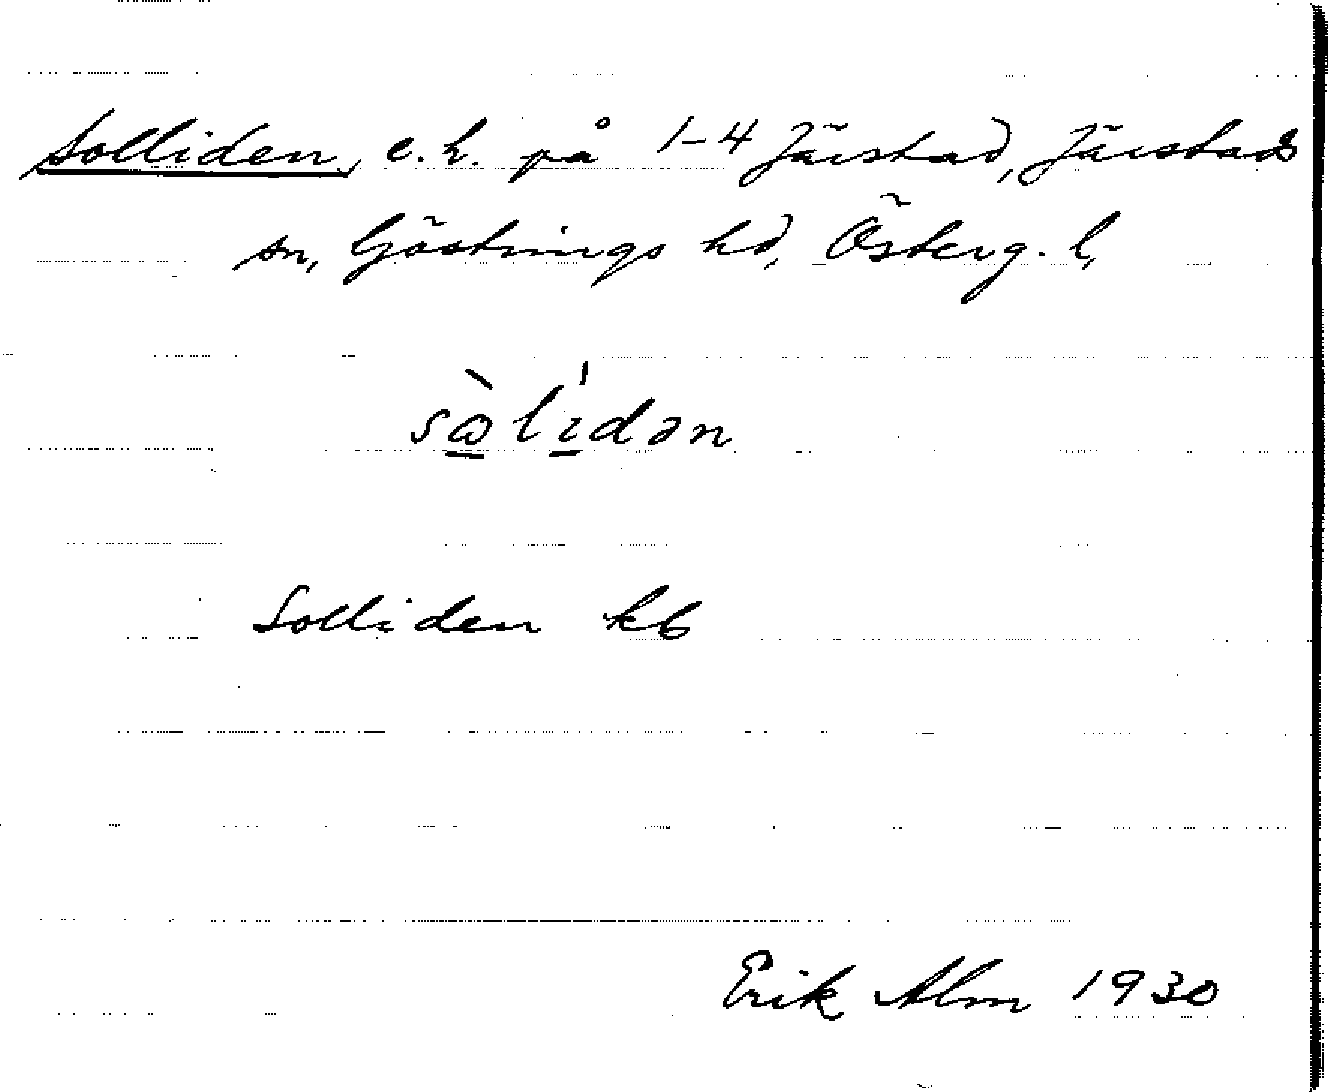 Solliden, e.h. på 1-4 Järstad, Järstads
sn, Göstrings hd, Österg. l,
sɷ̀lídən
Solliden kb
Erik Alm 1930